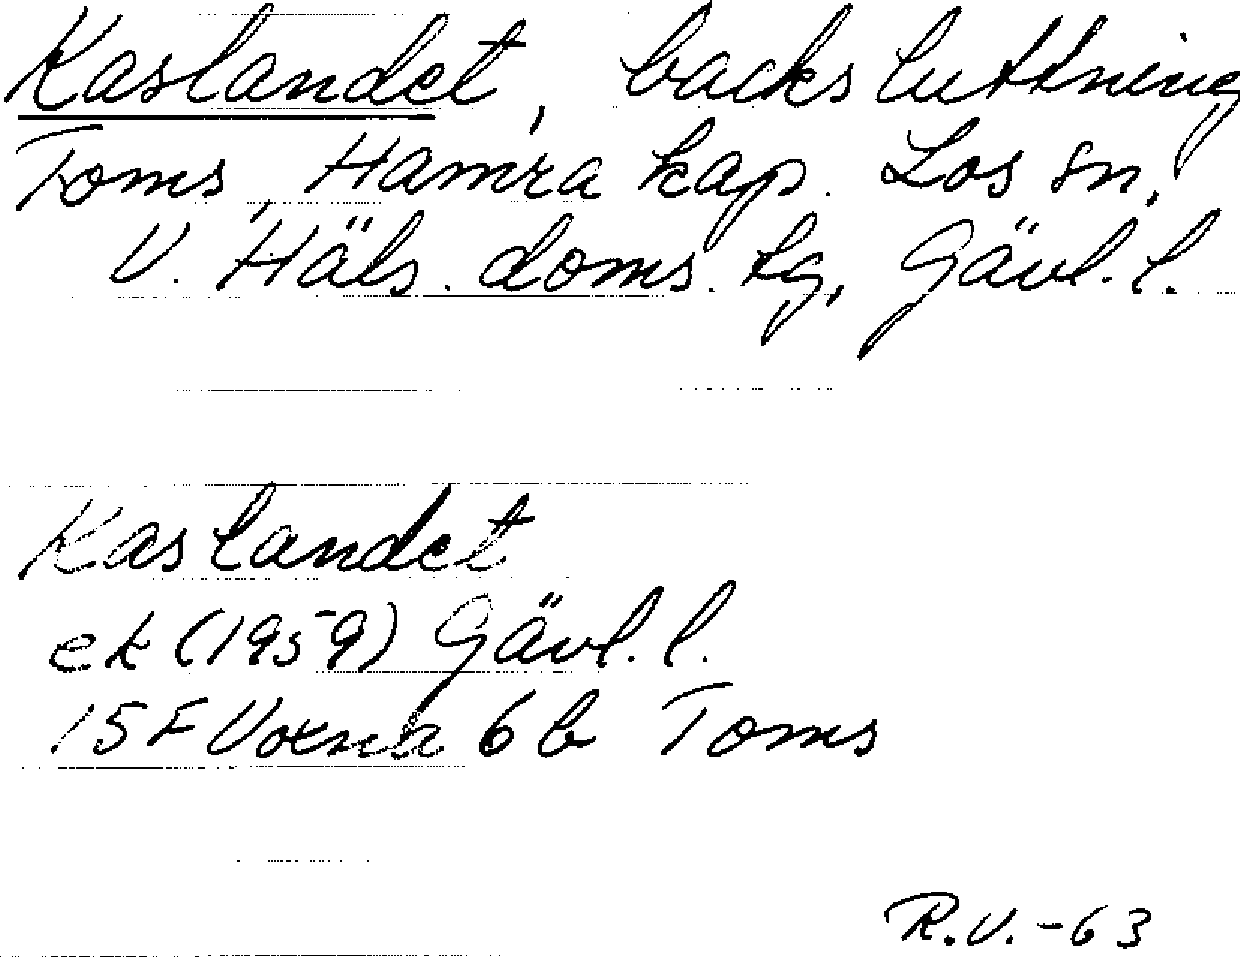 Kaslandet, backsluttning
Toms, Hamra kap. Los sn,
V. Häls. doms. tg, Gävl. l.
Kaslandet
ek (1959) Gävl. l.
15F Voxna 6b Toms
R.V.-63